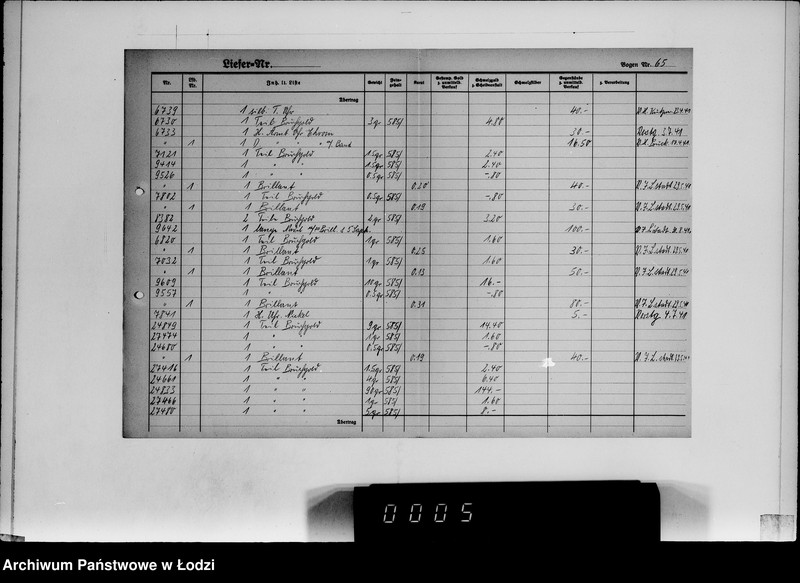 Liefer-Nr.
Bogen Nr. 65
Nr. Lfd. Nr. Inh. lt. Liste Gewicht Feingehalt Karat Gebrauchs-Gold z. unmittelb. Verkauf Schmelzgold z. Scheideanstalt Schmelzsilber Gegenstände z. unmittelb. Verkauf z. Verarbeitung
Übertrag
6739 1 silb. T. Uhr 40.-
6730 1 Teil Bruchgold 3gr 585/ 4.80
6733 1 H. Armb. Uhr Chrom 30.- Restg. 3.7.41
" 1 D. " " " m/ Band 16.50
7121 1 Teil Bruchgold 1.5gr 585/ 2.40
9414 1 " " 1.5gr 585/ 2.40
9526 1 " " 0.5gr 585/ -.80
" 1 1 Brillant 0.20 40.-
7802 1 Teil Bruchgold 0.5gr 585/ -.80
" 1 1 Brillant 0.19 30.-
8382 2 Teile Bruchgold 2gr 585/ 3.20
9642 1 lange Nadel m/ Brill. 100.-
6820 1 Teil Bruchgold 1gr 585/ 1.60
" 1 1 Brillant 0.25 30.-
7032 1 Teil Bruchgold 1gr 585/ 1.60
" 1 1 Brillant 0.13 50.-
9609 1 Teil Bruchgold 10gr 585/ 16.-
9557 1 " 0.5gr 585/ -.80
" 1 1 Brillant 0.31 80.-
7841 1 H. Uhr Nickel 5.- Restg. 4.7.41
24849 1 Teil Bruchgold 9gr 585/ 14.40
27474 1 " " 1gr 585/ 1.60
24680 1 " " 0.5gr 585/ -.80
" 1 1 Brillant 0.19 40.-
27416 1 Teil Bruchgold 1.5gr 585/ 2.40
24661 1 " " 4gr 585/ 6.40
24833 1 " " 90gr 585/ 144.-
27466 1 " " 1gr 585/ 1.60
27480 1 " " 5gr 585/ 8.-
Übertrag
0005
Archiwum Państwowe w Łodzi